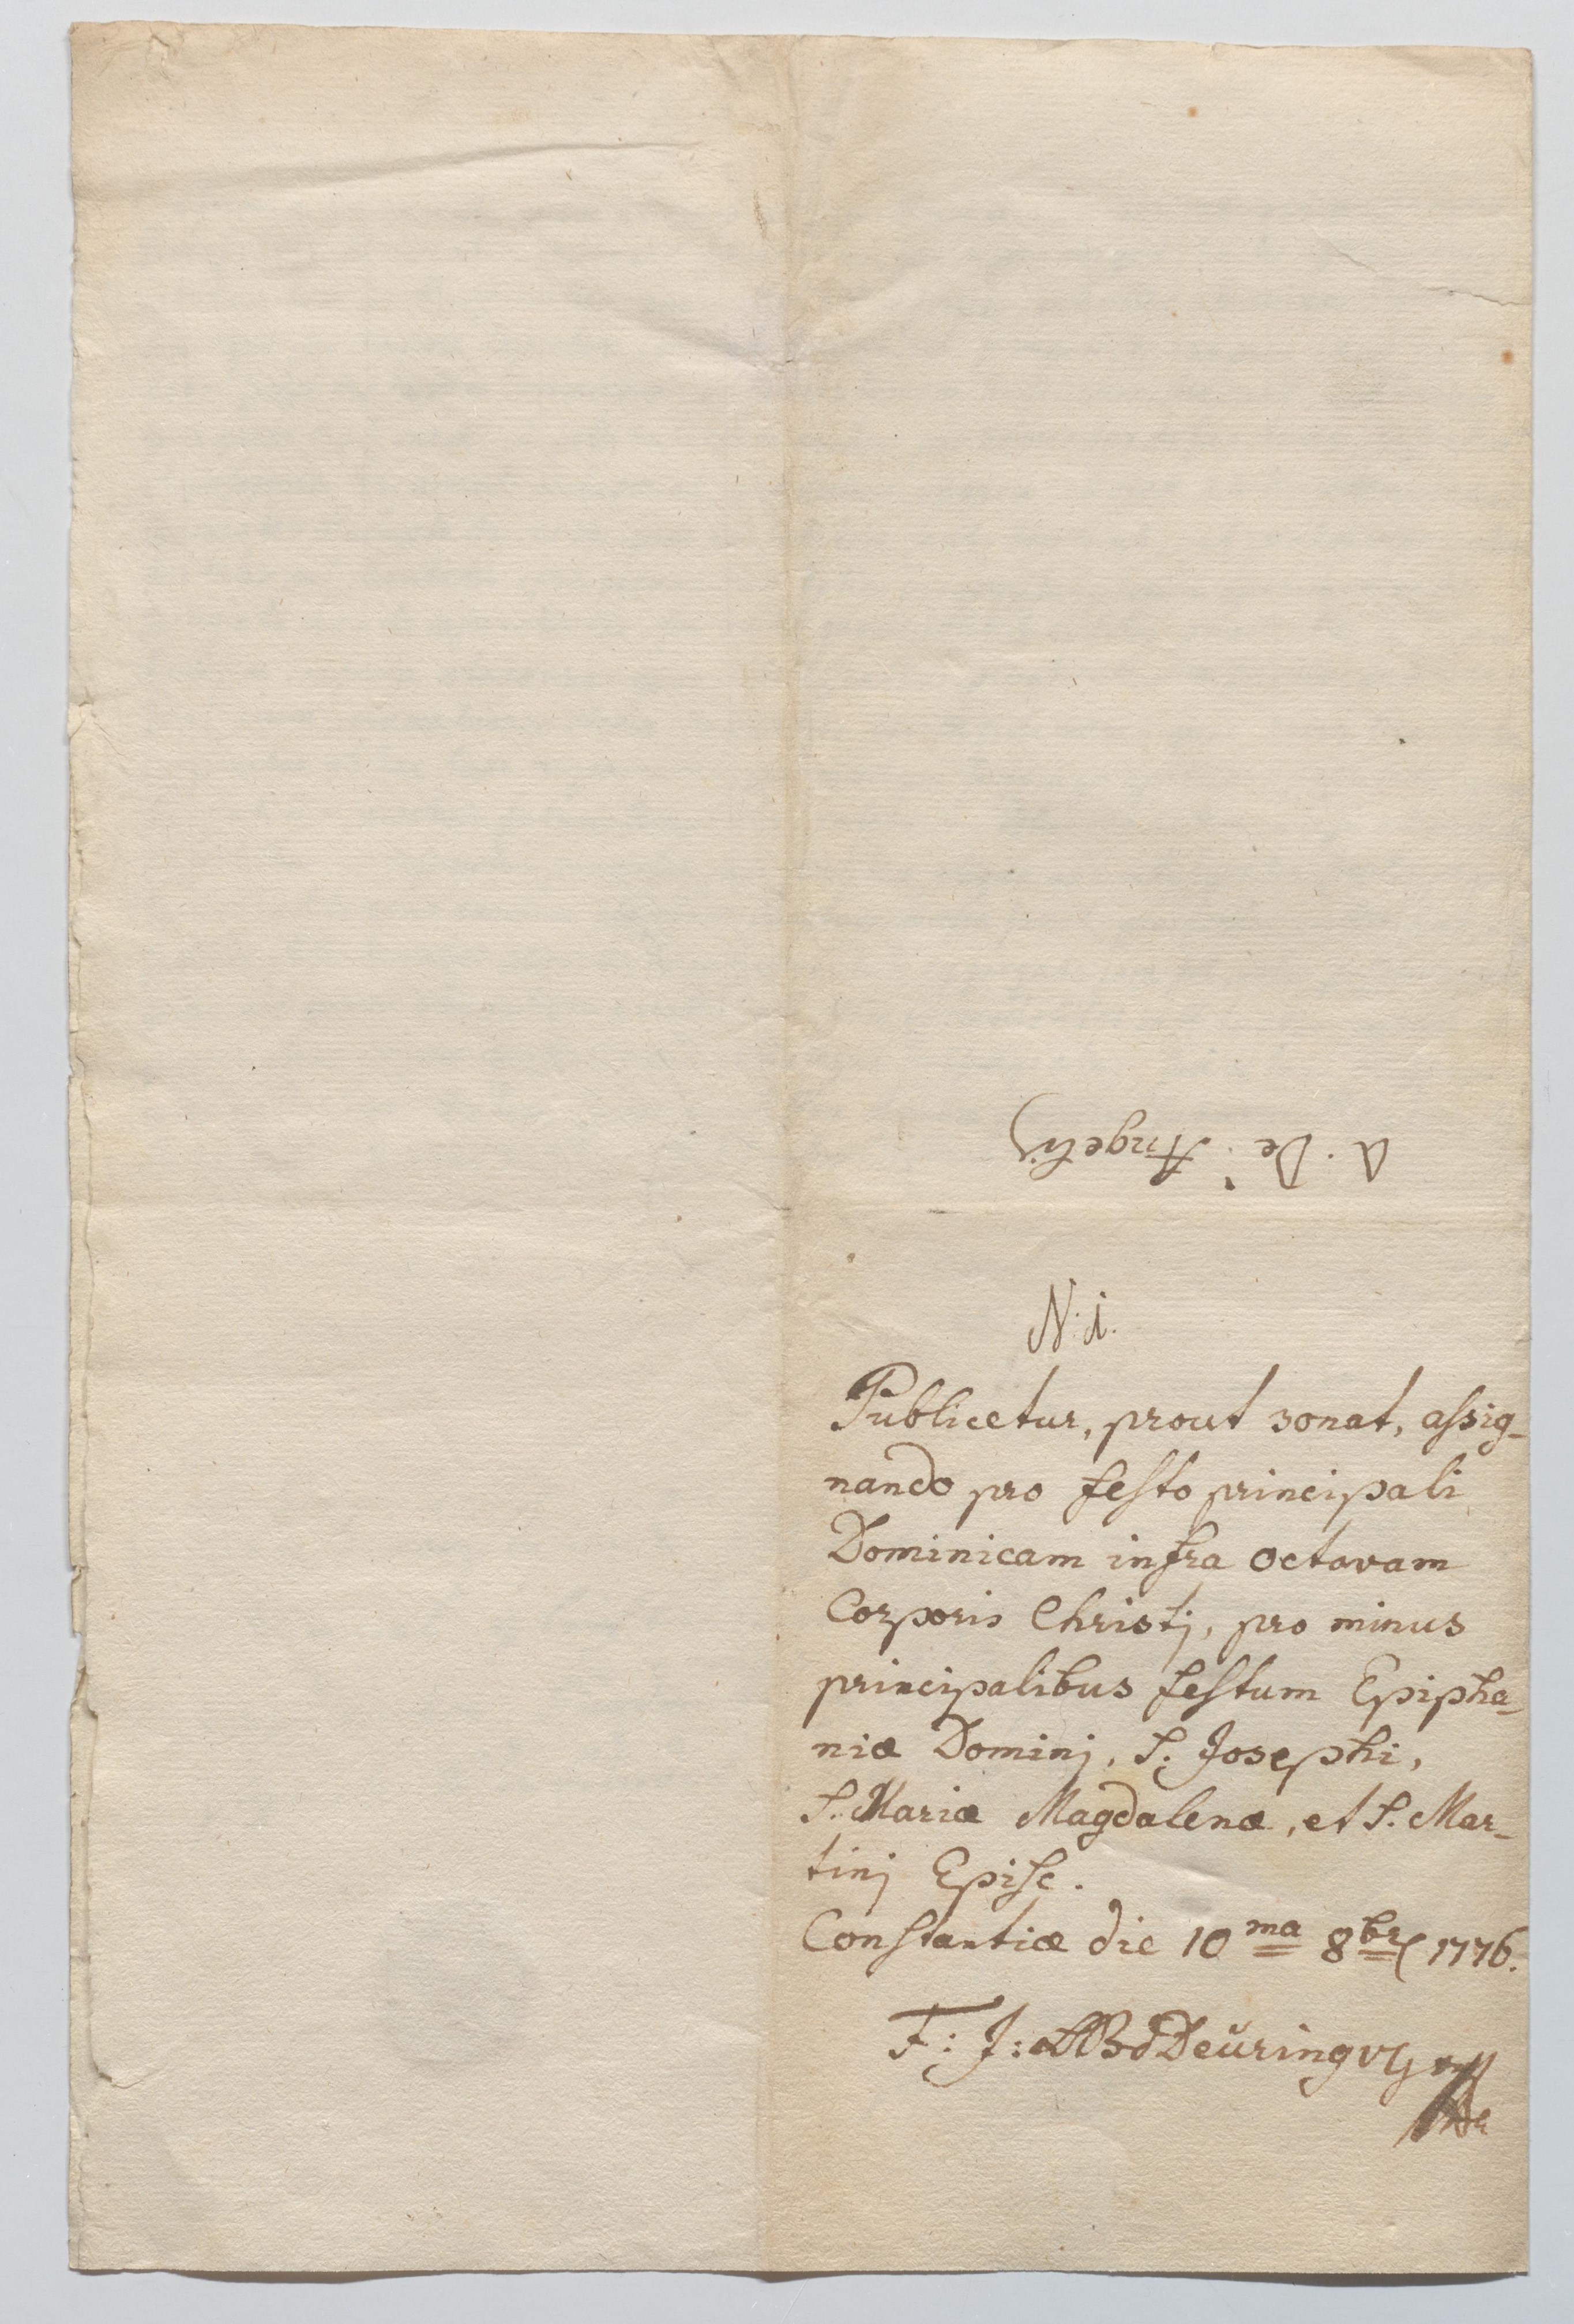 A. De Angelis
N: 1.
Publicetur, prout sonat, assig-
nando pro festo principali
Dominicam infra octavam
Corporis Christj, pro minus
principalibus festum Epipha-
niæ Dominj, S. Josephi,
S. Mariæ Magdalenæ, et S. Mar-
tinj Episc.
Constantiæ die 10ma 8br 1776.
F: J: LB d Deüring VG